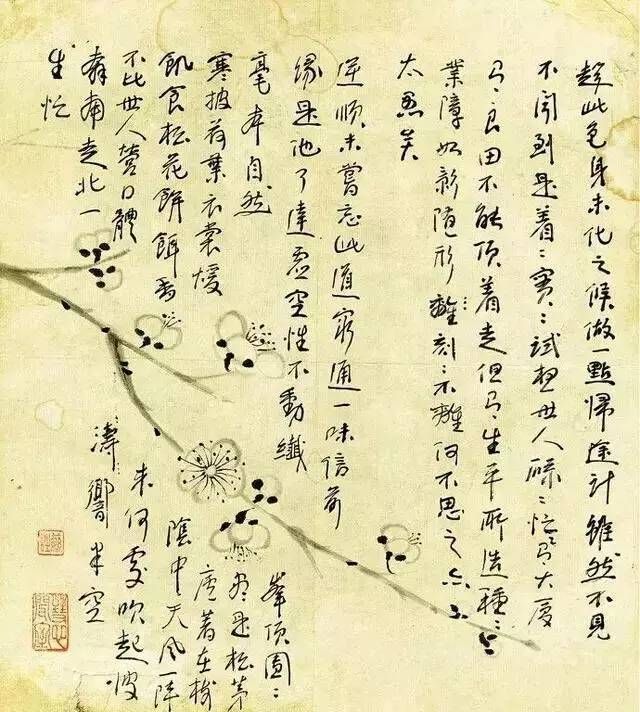 趁此色身未化之候做一點歸途計雖然不見
不聞到是着〻實〻試想世人碌〻忙〻為大厦
為良田不能頂着走但為生平所造種〻
業障如影隨形離刻〻不離何不思之
太愚矣
逆順未嘗忘此道窮通一味信前
緣是他了達虛空性不動纖
毫本自然
寒披荷葉衣裳煖
飢食松花餅餌香
不比世人營口體
奔南走北一
生忙
峯頂團〻
盡是松茅
屋著在樹
陰中天風一陣
來何處吹起波
濤響半空